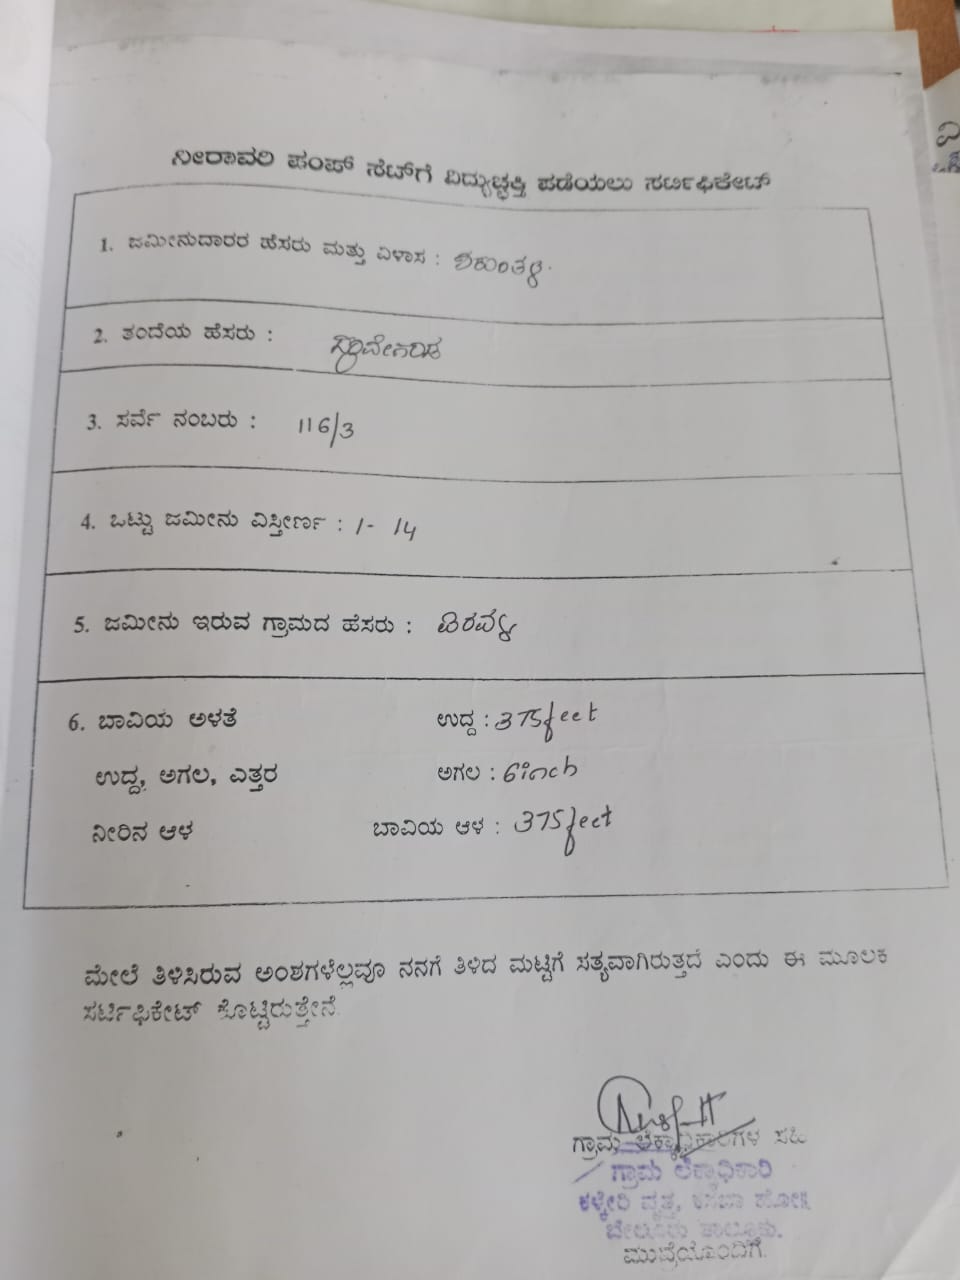 ನೀರಾವರಿ ಪಂಪ್ ಸೆಟ್‌ಗೆ ವಿದ್ಯುಚ್ಛಕ್ತಿ ಪಡೆಯಲು ಸರ್ಟಿಫಿಕೇಟ್
1. ಜಮೀನುದಾರರ ಹೆಸರು ಮತ್ತು ವಿಳಾಸ : ಶಕುಂತಳ.
2. ತಂದೆಯ ಹೆಸರು :
3. ಸರ್ವೆ ನಂಬರು : 116/3
4. ಒಟ್ಟು ಜಮೀನು ವಿಸ್ತೀರ್ಣ : 1- 14
5. ಜಮೀನು ಇರುವ ಗ್ರಾಮದ ಹೆಸರು :
6. ಬಾವಿಯ ಅಳತೆ ಉದ್ದ : 375feet
ಉದ್ದ, ಅಗಲ, ಎತ್ತರ ಅಗಲ : 6inch
ನೀರಿನ ಆಳ ಬಾವಿಯ ಆಳ : 375feet
ಮೇಲೆ ತಿಳಿಸಿರುವ ಅಂಶಗಳೆಲ್ಲವೂ ನನಗೆ ತಿಳಿದ ಮಟ್ಟಿಗೆ ಸತ್ಯವಾಗಿರುತ್ತದೆ ಎಂದು ಈ ಮೂಲಕ
ಸರ್ಟಿಫಿಕೇಟ್ ಕೊಟ್ಟಿರುತ್ತೇನೆ.
ಗ್ರಾಮ ಲೆಕ್ಕಾಧಿಕಾರಿಗಳ ಸಹಿ
ಗ್ರಾಮ ಲೆಕ್ಕಾಧಿಕಾರಿ
ಕಳ್ಳೇರಿ ವೃತ್ತ, ಕಸಬಾ ಹೋಬಳಿ
ಬೇಲೂರು ತಾಲ್ಲೂಕು.
ಮುದ್ರೆಯೊಂದಿಗೆ.